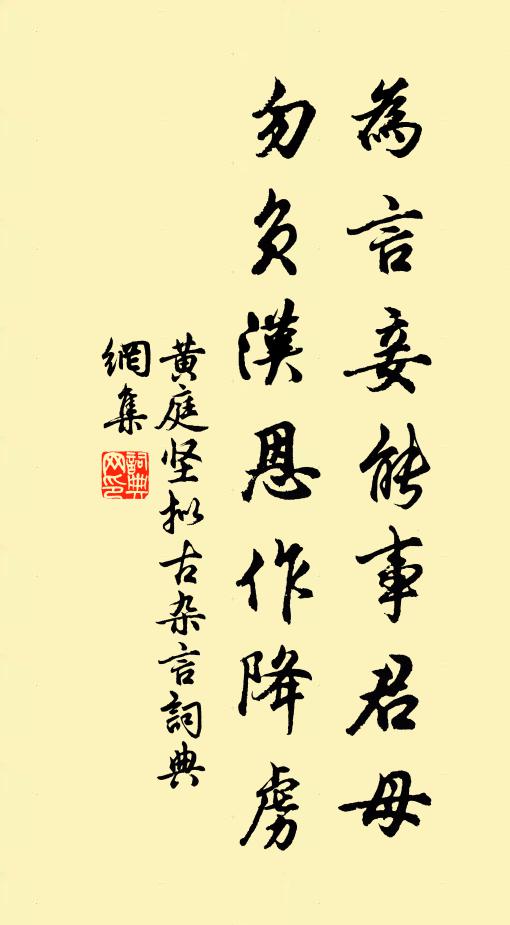 為言妾能事君母
勿負漢恩作降虜
黄庭坚拟古杂言詞典
網集
詞典网印